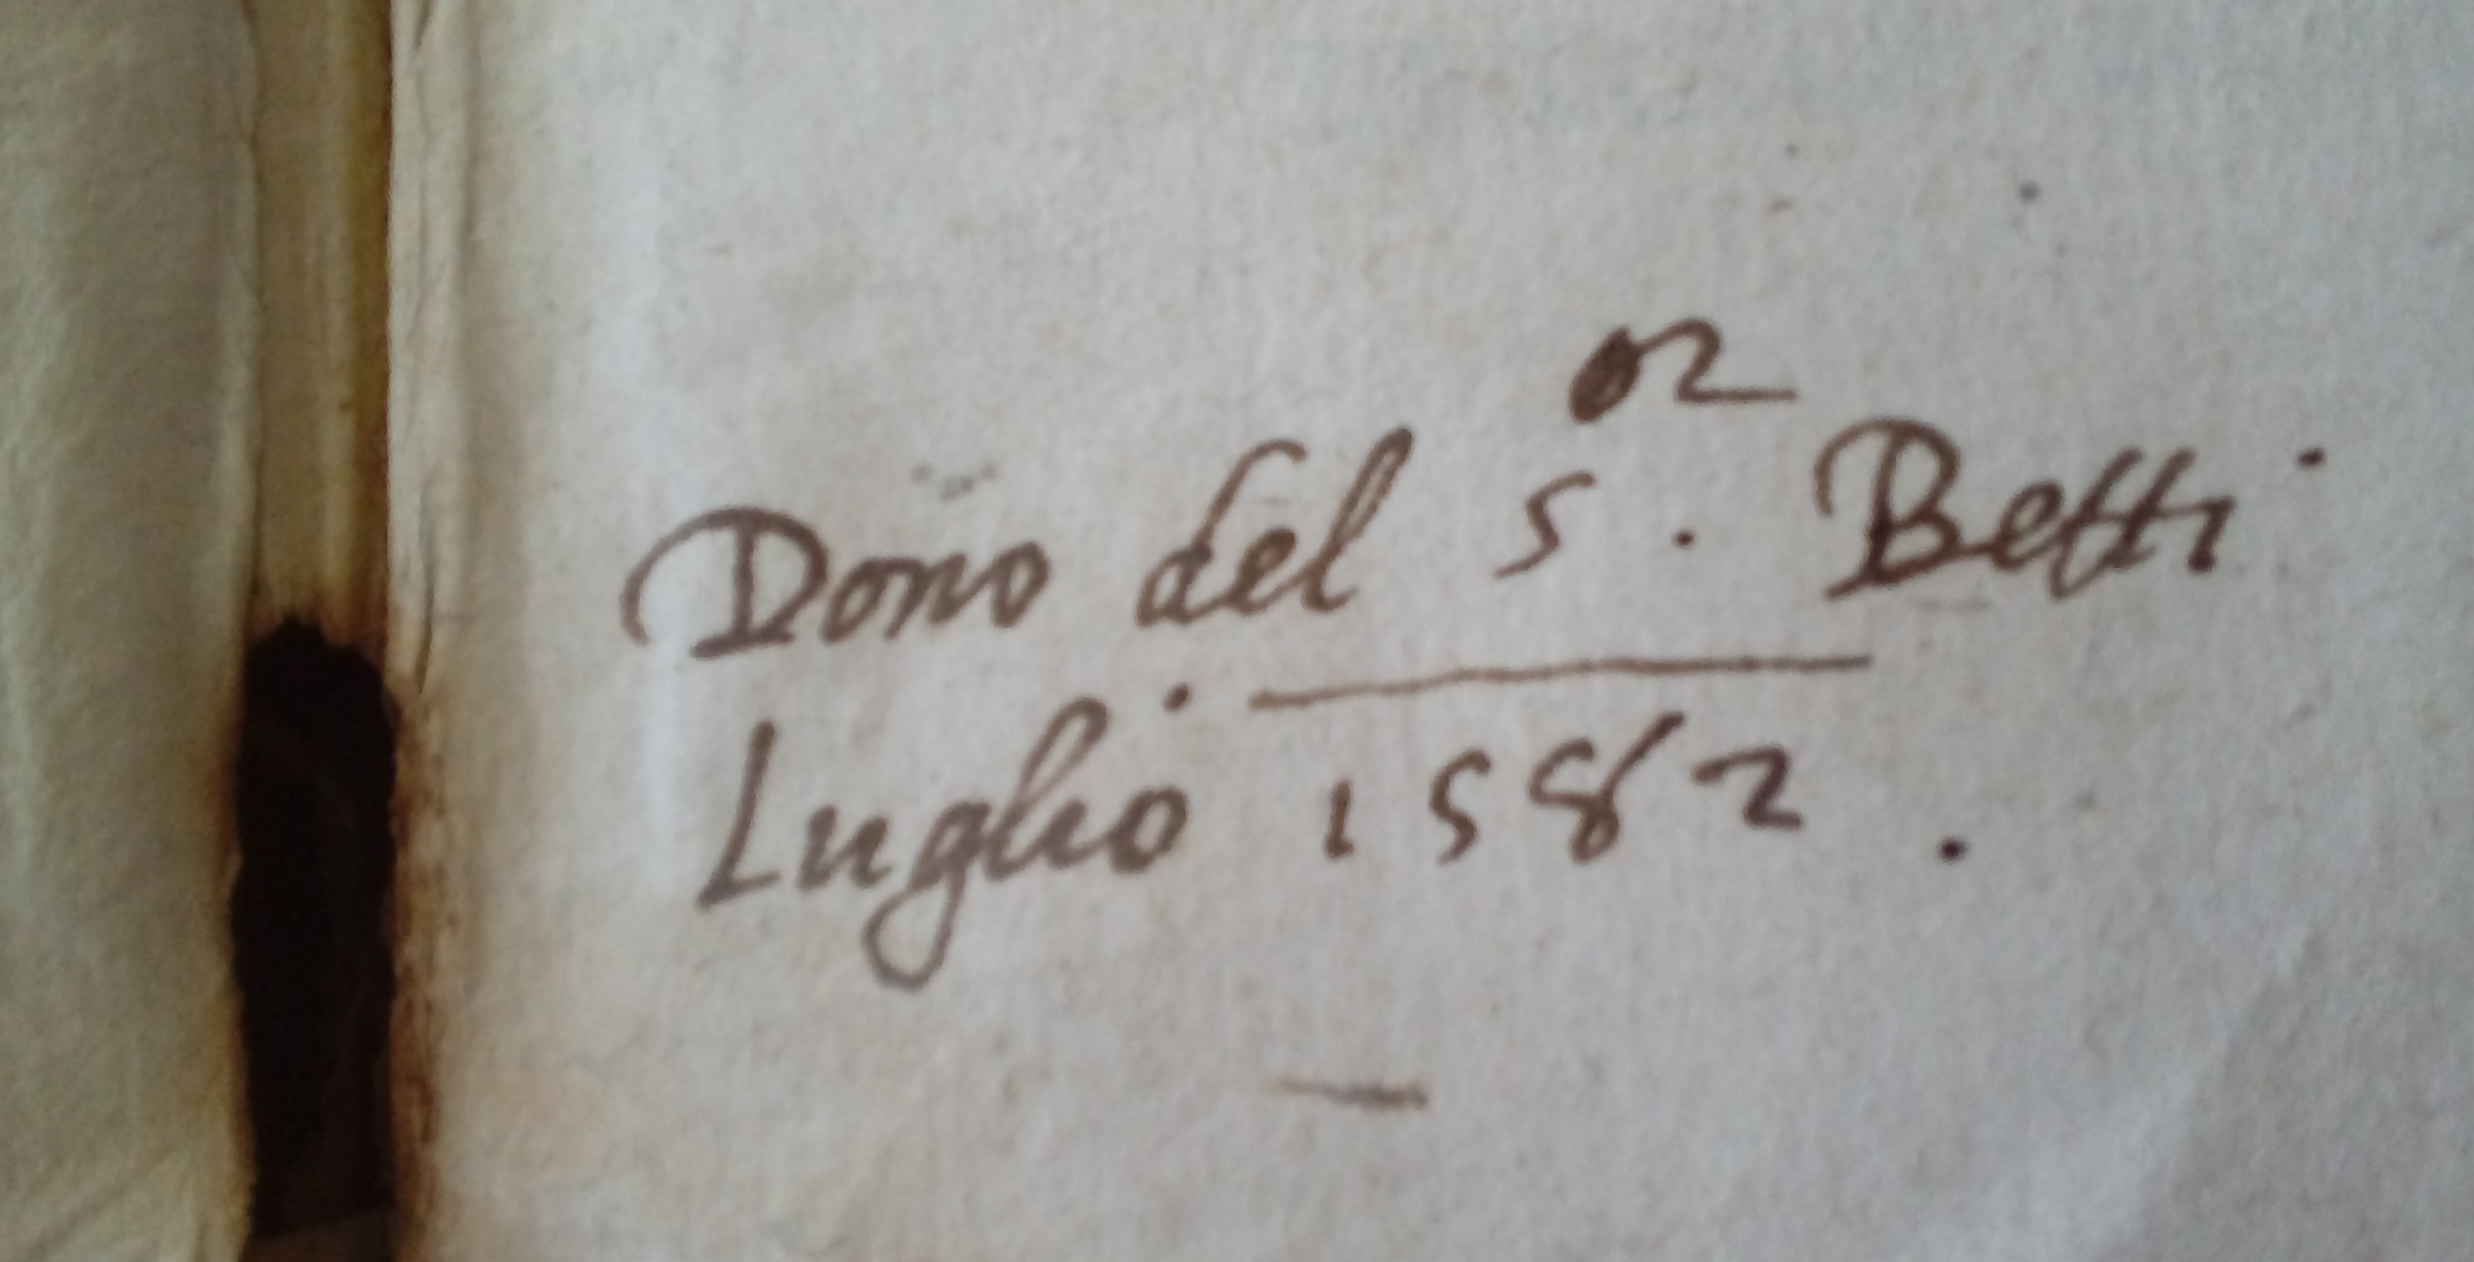 Dono del S.or Betti
Luglio 1582.